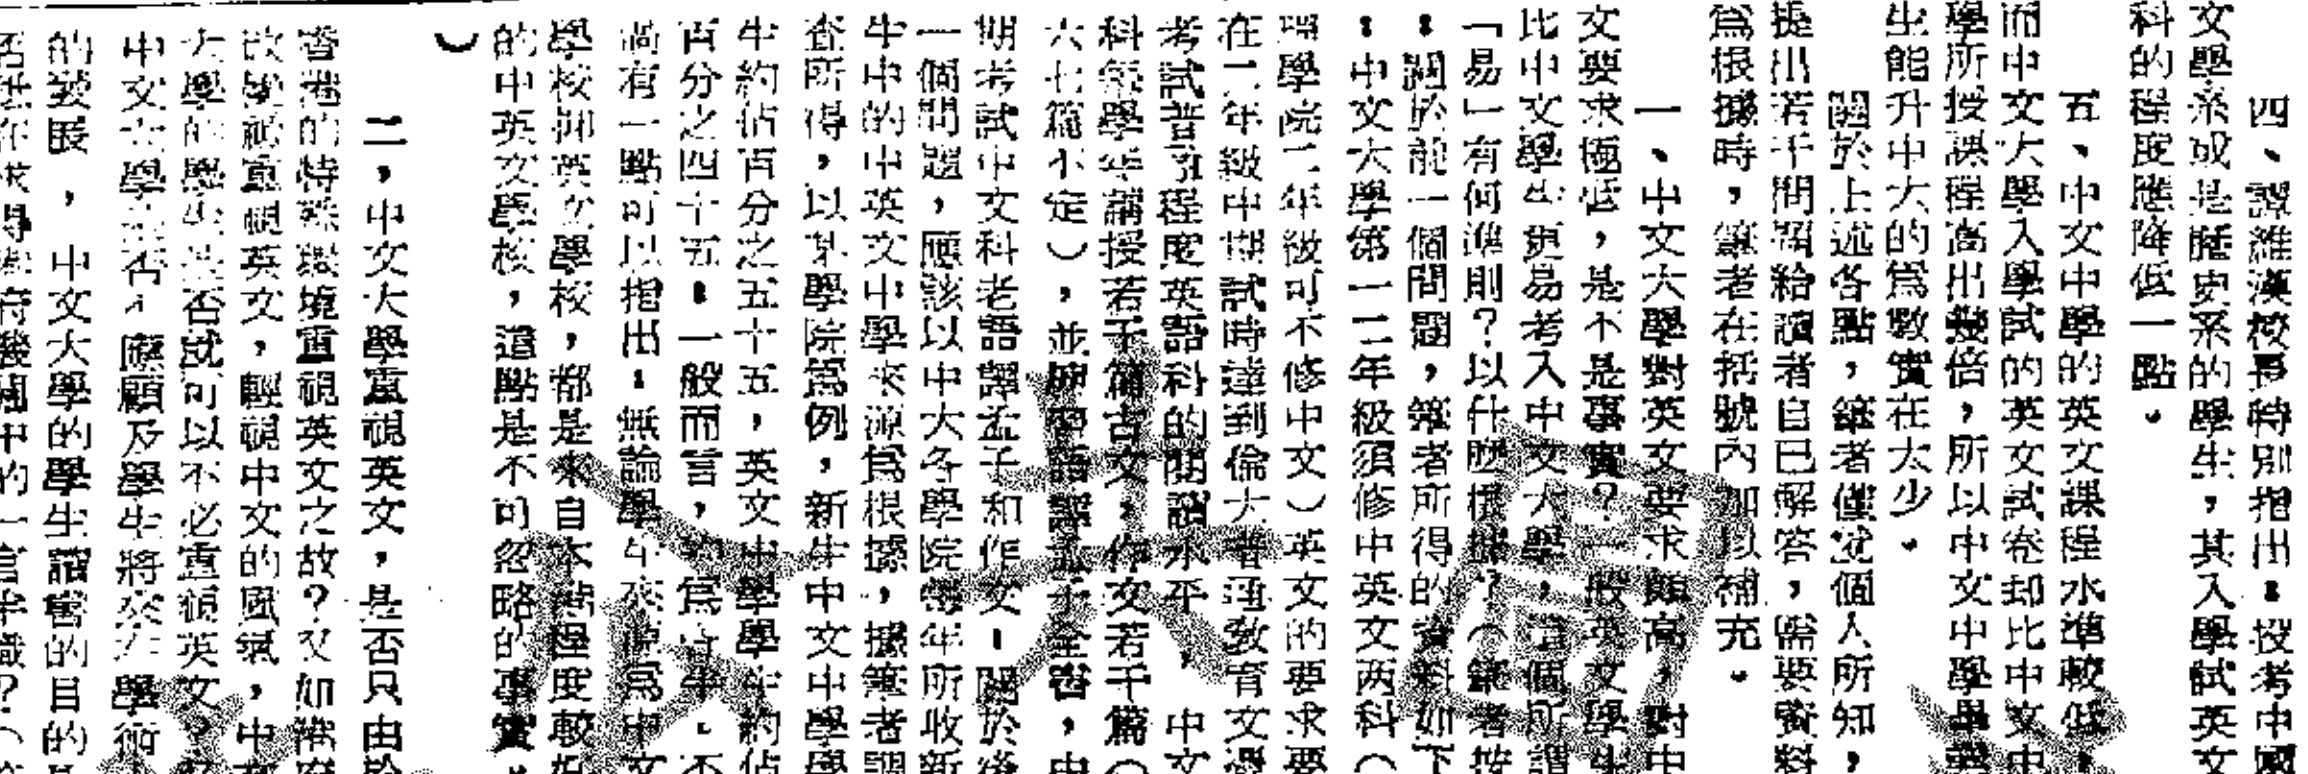 四、譚維漢校長特別指出：投考中國
文學系或是歷史系的學生，其入學試英文
科的程度應降低一點。
五、中文中學的英文課程水準較低，
而中文大學入學試的英文試卷却比中文中
學所授課程高出幾倍，所以中文中學畢業
生能升中大的爲數實在太少。
關於上述各點，筆者僅就個人所知，
提出若干問題給讀者自己解答，需要資料
爲根據時，筆者在括號內加以補充。
一、中文大學對英文要求頗高，對中
文要求極低，是不是事實？一般英文學生
比中文學生更易考入中文大學，這個所謂
「易」有何準則？以什麽根據？（筆者按
：關於前一個問題，筆者所得的資料如下
：中文大學第一二年級須修中英文兩科（
理學院二年級可不修中文）英文的要求要
在二年級中期試時達到倫大普通教育文憑
考試普通程度英語科的閱讀水平，中文
科每學年講授若干篇古文，作文若干篇（
六七篇不定），並將語譯孟子全書，由
期考試中文科老語譯孟子和作文！關於後
一個問題，應該以中大各學院每年所收新
生中的中英文中學來源爲根據，據筆者調
查所得，以某學院爲例，新生中文中學學
生約佔百分之五十五，英文中學學生約佔
百分之四十五！一般而言，約爲各半。不
過有一點可以指出：無論學生來源爲中文
學校抑英文學校，都是來自本港程度較好
的中英文學校，這點是不可忽略的事實。
）
二，中文大學重視英文，是否只由於
香港的特殊環境重視英文之故？又如港府
政策祇重視英文，輕視中文的風氣，中文
大學的學生是否就可以不必重視英文？
中文大學是否才應顧及學生將來在學術
的發展，中文大學的學生讀書的目的
機關中的一官半職？（